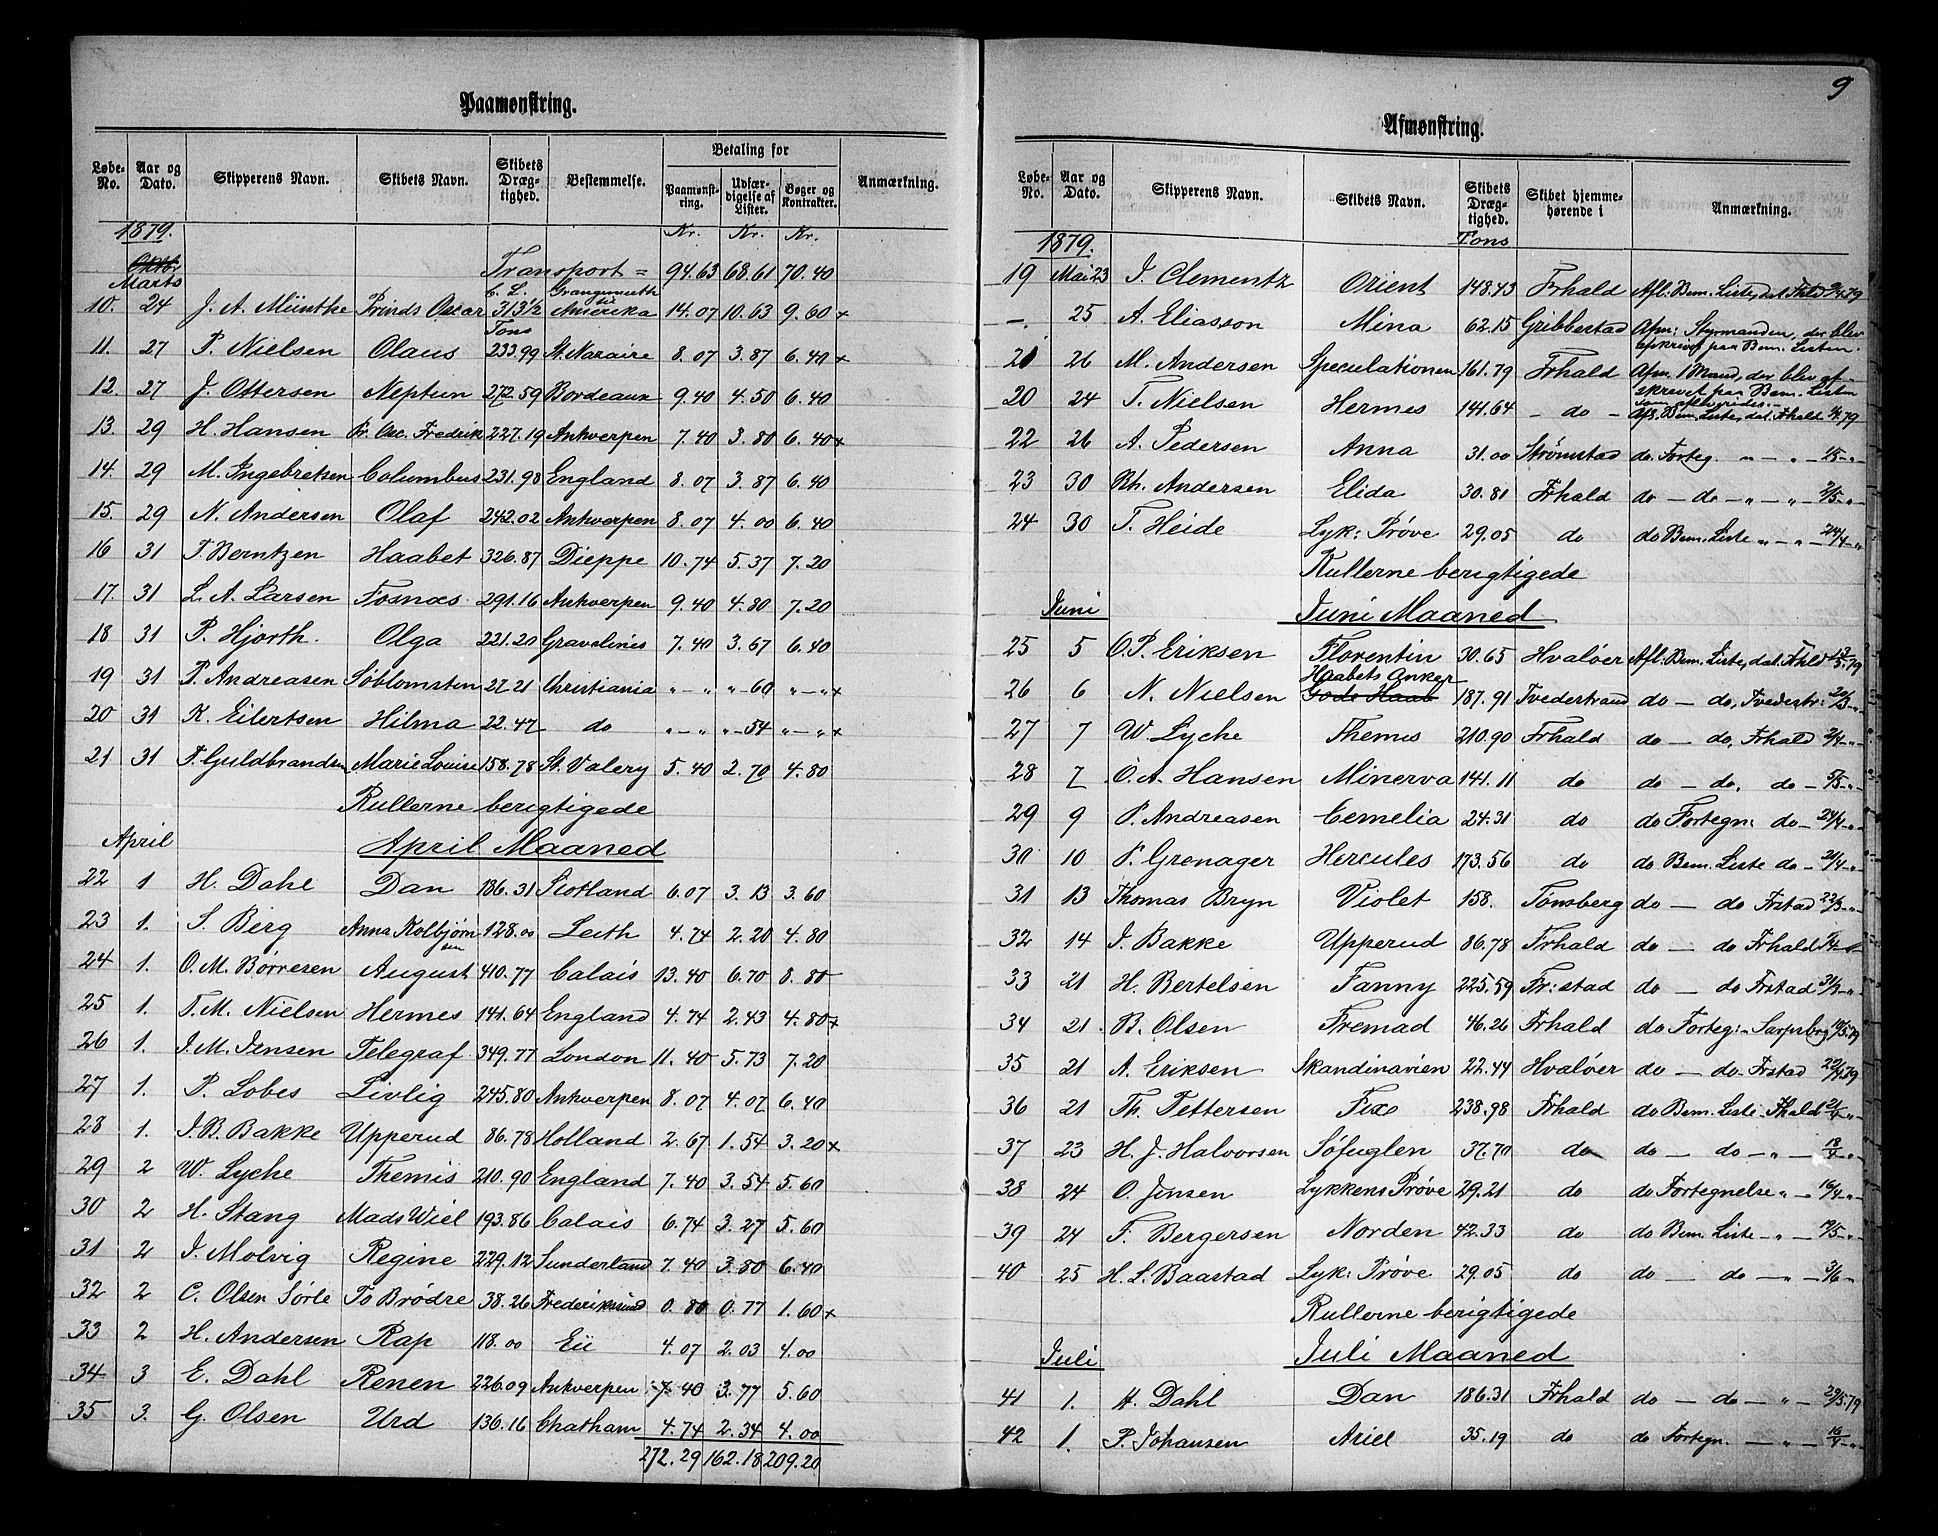 Paamønstring.
Løbe-No. Aar og Dato. Skipperens Navn. Skibets Navn. Skibets Dræg-tighed. Bestemmelse. Betaling for Paamønst-ring. Udfær-digelse af Lister. Bøger og Kontrakter. Anmærkning.
1879. Kr. Kr. Kr.
Transport = 94.63 68.61 70.40
Marts C. L. Grangemouth
10. 24 J. A. Müntke Prinds Oscar 313½ Amerika 14.07 10.63 9.60 +
Tons
11. 27 P. Nielsen Olaus 233.99 St. Nazaire 8.07 3.87 6.40 +
12. 27 J. Ottersen Neptun 272.59 Bordeaux 9.40 4.50 6.40
13. 29 H. Hansen Pr. Osc. Fredrik 227.19 Antverpen 7.40 3.80 6.40 +
14. 29 M. Ingebretsen Columbus 231.98 England 8.07 3.87 6.40
15. 29 N. Andersen Olaf 242.02 Antverpen 8.07 4.00 6.40
16 31 T. Berntzen Haabet 326.87 Dieppe 10.74 5.37 7.20
17. 31 L. A. Larsen Fosnæs 291.16 Antverpen 9.40 4.80 7.20
18 31 P. Hjorth. Olga 221.20 Gravelinis 7.40 3.67 6.40
19 31 P. Andreasen Søblomsten 27.21 Christiania " — " " 60 " — " +
20 31 K. Eilertsen Hilma 22.47 do " — " " 54 " — " +
21 31 F. Guldbrandsen Marie Lovise 158.78 St. Valery 5.40 2.70 4.80
Rullerne berigtigede
April April Maaned
22 1 H. Dahl Dan 186.31 Skotland 6.07 3.13 3.60
23 1. S. Berg Anna Kolbjørnsen 128.00 Leith 4.74 2.20 4.80
24 1. O. M. Børresen August 410.77 Calais 13.40 6.70 8.80
25 1. T. M. Nielsen Hermes 141.64 England 4.74 2.43 4.80 +
26 1. J. M. Jensen Telegraf 349.77 London 11.40 5.73 7.20
27 1. P. Lobes Livlig 245.80 Antverpen 8.07 4.07 6.40
28 1. J. B. Bakke Upperud 86.78 Holland 2.67 1.54 3.20 +
29 2 W. Lyche Themis 210.90 England 7.40 3.54 5.60
30 2 H. Stang Mads Wiel 193.86 Calais 6.74 3.27 5.60
31 2 J. Molvig Regine 229.12 Sunderland 7.40 3.80 6.40
32 2 C. Olsen Sørle To Brødre 38.26 Frederikssund 0.80 0.77 1.60 +
33 2 H. Andersen Rap 118.00 Eü 4.07 2.03 4.00
34 3 E. Dahl Renen 226.09 Antverpen 7.40 3.77 5.60
35 3. G. Olsen Urd 136.16 Chatham 4.74 2.34 4.00
272.29 162.18 209.20
9
Afmønstring.
Løbe-No. Aar og Dato. Skipperens Navn. Skibets Navn. Skibets Dræg-tighed. Skibet hjemme-hørende i Anmærkning.
1879. Tons
19 Mai 23 J. Clementz Orient 148.43 Frhald Afl. Bem. Liste, dat. Fhld
— 25 A. Eliasson Mina 62.15 Gribbestad Afm: Styrmanden, der blev
afskrevet paa Bem. Listen.
21 26 M. Andersen Speculationen 161.79 Frhald Afm. 1 Mand, der blev af-
skrevet paa Bem. Listen
20 24 T. Nielsen Hermes 141.64 — do — Afl. Bem. Liste, dat. Frhald 79
22 26 A. Pedersen Anna 31.00 Strømstad do. Forteg. " — "
23 30 Rh. Andersen Elida 30.81 Frhald do — do — " — " 2/5 "
24 30 T. Heide Lyk: Prøve 29.05 do do Bem. Liste " — " — 24/4 "
Rullerne berigtigede
Juni Juni Maaned
25 5 O. P. Eriksen Florentin 30.65 Hvaløer Afl. Bem. Liste, dat. Fhld
Haabets Anker
26 6 N. Nielsen Gode Haab 187.91 Tvedestrand do — do, Tvedestr:
27 7 W. Lyche Themis 210.90 Frhald do — do, Frhald 2/4 "
28 7 O. A. Hansen Minerva 141.11 do do — do. do — 5/5 "
29 9 P. Andreasen Cemelia 24.31 do do Fortegn: do — 24/4 "
30 10 P. Grenager Hercules 173.56 do do Bem. Liste do — 21/4 "
31 13 Thomas Bryn Violet 158. Tønsberg do — do Frstad 22/3 "
32 14 J. Bakke Upperud 86.78 Frhald do — do Frhald
33 21 H. Bertelsen Fanny 225.59 Fr:stad do — do Frstad 31/3 "
34 21. B. Olsen Fremad 46.26 Frhald do Forteg: — Sarpsborg
35 21 A. Eriksen Skandinavien 22.44 Hvaløer do — do — Frstad 22/4 79
36 21 Th. Pettersen Fix 238.98 Frhald do Bem. Liste — Fhald 21/4 "
37 23 H. J. Halvorsen Søfuglen 37.70 do do — do — " — 18/4 "
38 24 O. Jensen Lykkens Prøve 29.21 do do Fortegnelse " — 16/4 "
39 24 F. Bergersen Norden 42.33 do do Bem. Liste — " — 19/5 "
40 25 H. L. Baastad Lyk: Prøve 29.05 do do — do — " — 3/6 —
Rullerne berigtigede
Juli Juli Maaned
41 1. H. Dahl Dan 186.31 Frhald do — do — " — 29/5 79
42 1. P. Johansen Ariel 35.19 do do Fortegn. — " — 16/4 "